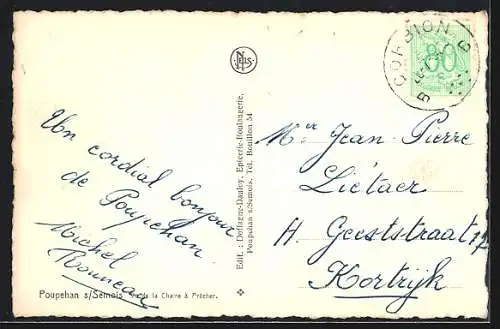 CORBION
B
80
c
NELS
Un cordial bonjour
de Poupehan.
Michel
Edit. : Deffagne-Dauby, Epicerie-Boulangerie,
Poupehan s/Semois. Tél. Bouillon 54
Mr Jean-Pierre
Liétaer
Geeststraat
Kortrijk
Poupehan s/Semois de la Chaire à Prêcher.